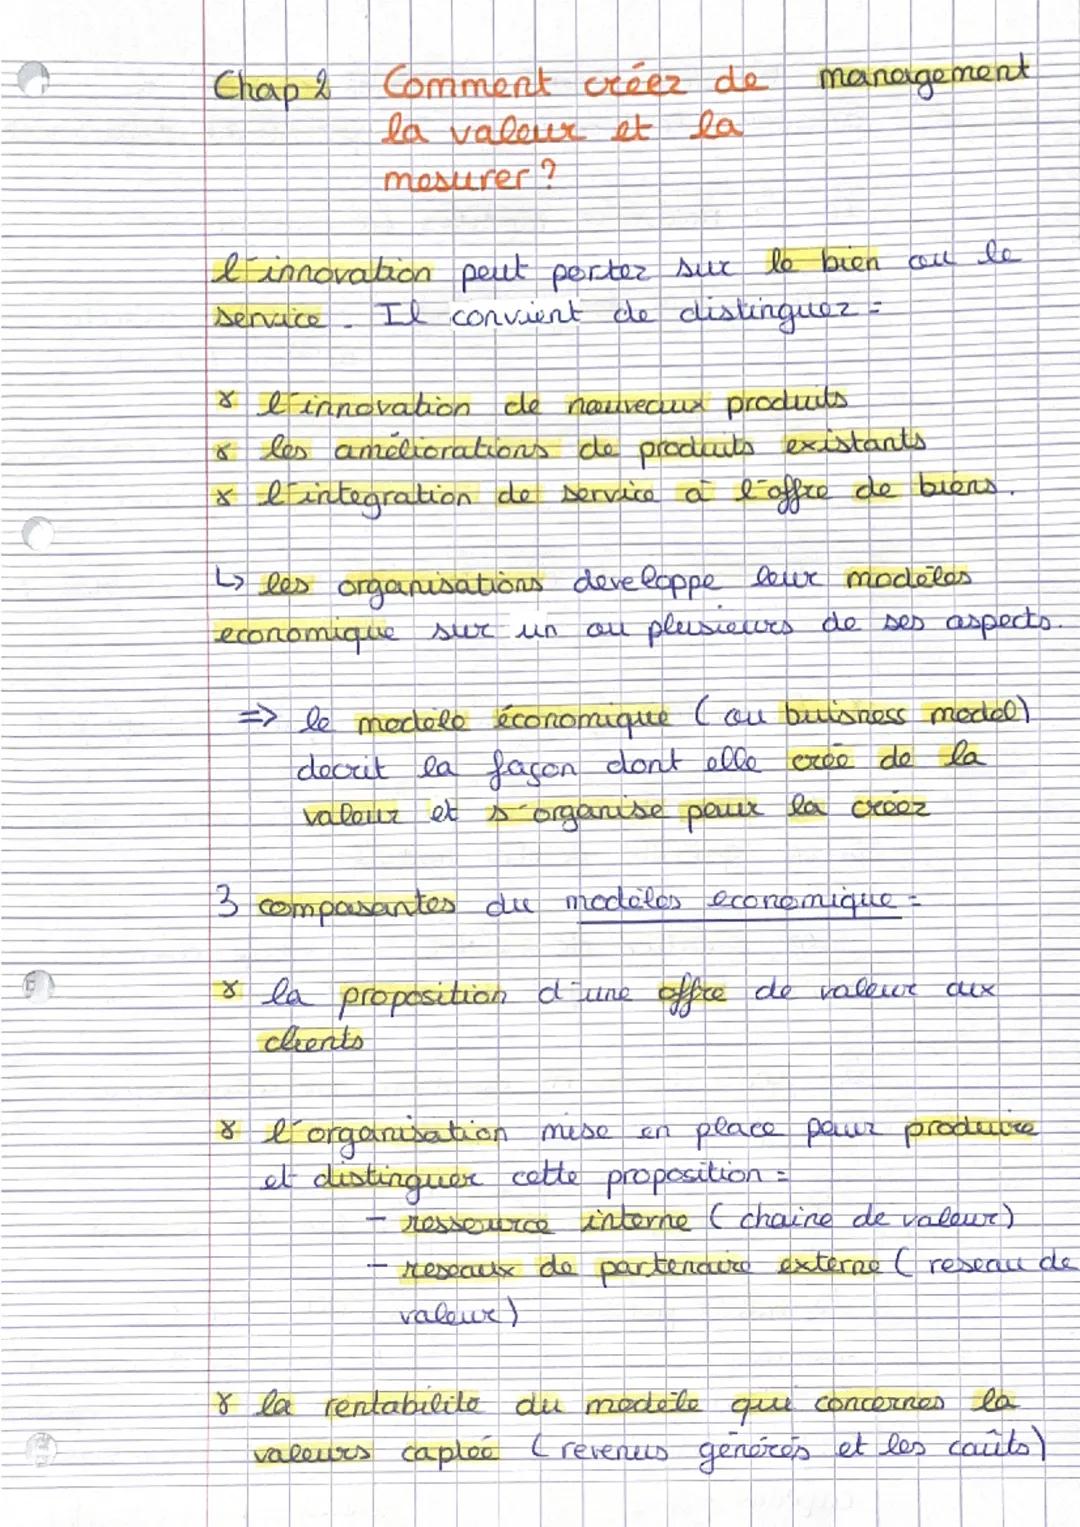 Chap 2 Comment créez de management
la valeur et la
mesurer ?
l'innovation peut porter sur le bien ou le
service. Il convient de distinguer =
* l'innovation de nouveaux produits
* les améliorations de produits existants
* l'integration de service à l'offre de biens.
↳ les organisations developpe leur modèles
economique sur un ou plusieurs de ses aspects.
=> le modèle économique ( ou buisness model)
decrit la façon dont elle crée de la
valeur et s'organise pour la créer
3 composantes du modèles economique =
* la proposition d'une offre de valeur aux
clients
* l'organisation mise en place pour produire
et distinguer cette proposition =
- ressource interne ( chaine de valeur)
- reseaux de partenaire externe ( reseau de
valeur)
* la rentabilité du modèle qui concernes la
valeurs captée ( revenus générés et les coûts)